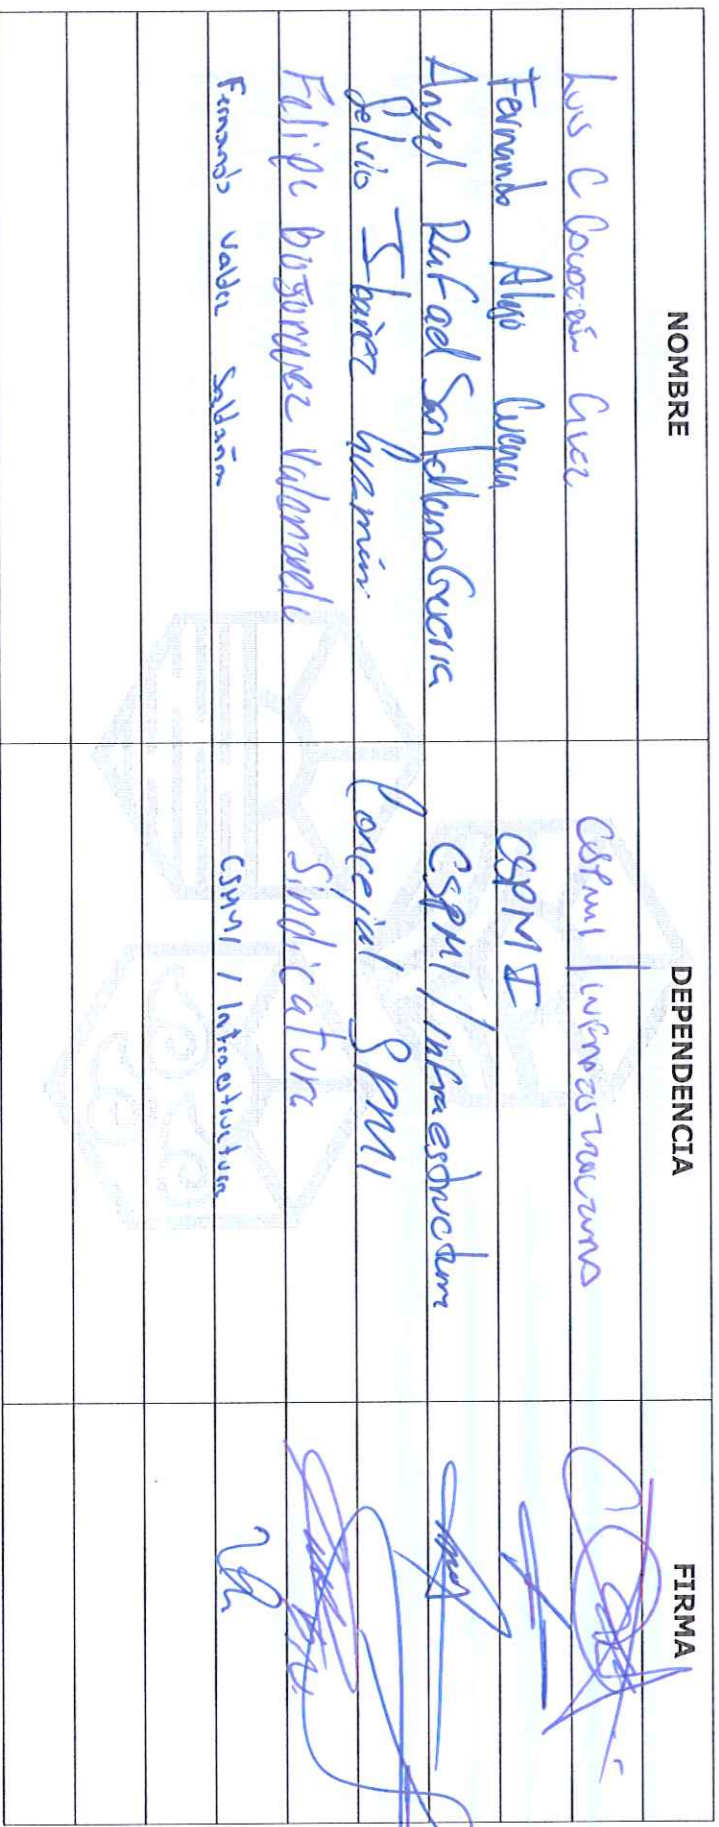 NOMBRE DEPENDENCIA FIRMA
Luis C Cruz CSPMI / infraestructura
Fernando Cuenca CSPM I
Angel Rafael Santellano Guerra CSPMI / infraestructura
Selvio Ibañez Guzmán Concejal SPMI
Felipe Bojorquez Valenzuela Sindicatura
Fernando Valdez Saldaña CSPMI / Infraestructura